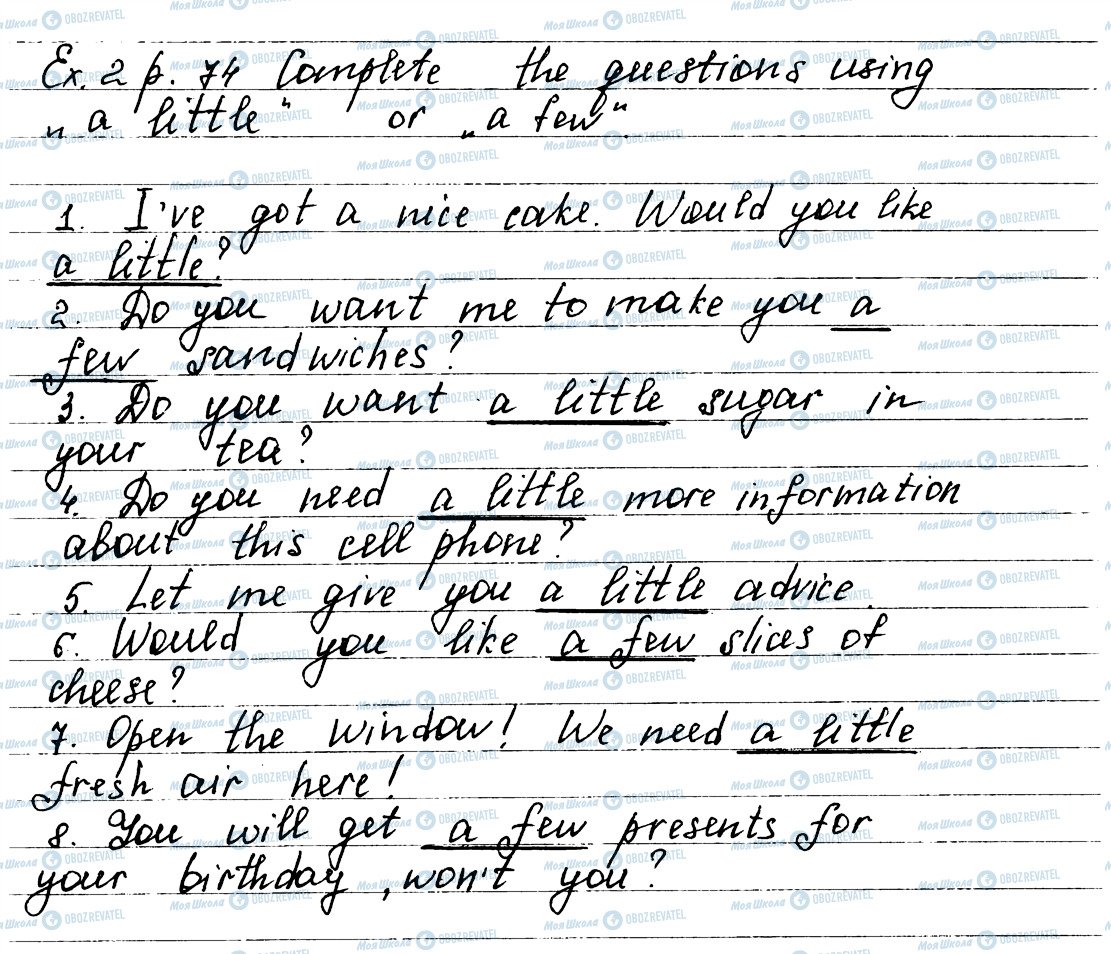 Ex. 2 p. 74 Complete the questions using
„a little" or „a few".
1. I've got a nice cake. Would you like
a little?
2. Do you want me to make you a
few sandwiches?
3. Do you want a little sugar in
your tea?
4. Do you need a little more information
about this cell phone?
5. Let me give you a little advice.
6. Would you like a few slices of
cheese?
7. Open the window! We need a little
fresh air here!
8. You will get a few presents for
your birthday, won't you?
Моя Школа OBOZREVATEL